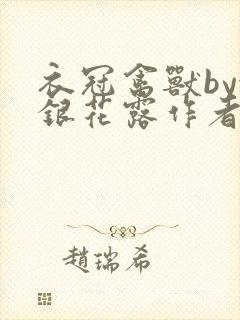 衣冠禽獸by
銀花露作者
趙瑞希